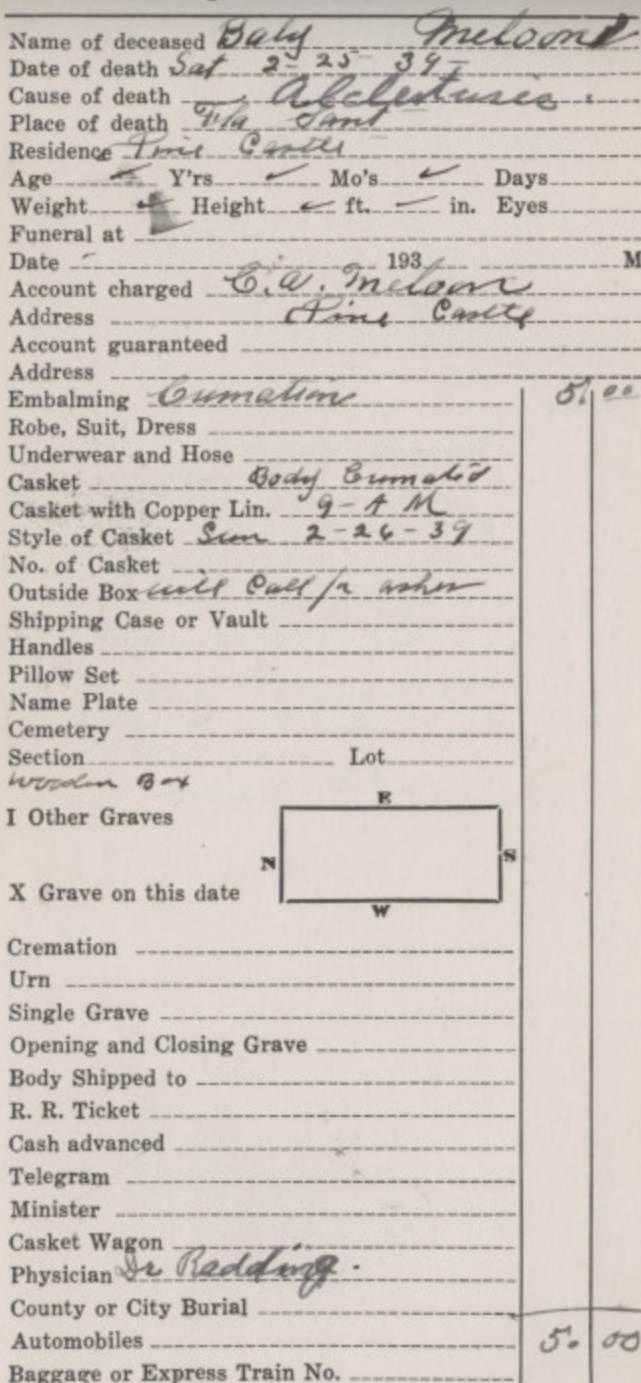 Name of deceased Baby Meloon
Date of death Sat 2-25-39
Cause of death
Place of death Fla Sant
Residence Pine Castle
Age Y'rs. Mo's Days
Weight Height ft. in. Eyes
Funeral at
Date 193 M
Account charged C.A. Meloon
Address Pine Castle
Account guaranteed
Address
Embalming Cremation 5.00
Robe, Suit, Dress
Underwear and Hose
Casket Body Cremated
Casket with Copper Lin. 9-AM
Style of Casket Sun 2-26-39
No. of Casket
Outside Box will call for ashes
Shipping Case or Vault
Handles
Pillow Set
Name Plate
Cemetery
Section Lot
Wooden Box
E
I Other Graves
N S
X Grave on this date
W
Cremation
Urn
Single Grave
Opening and Closing Grave
Body Shipped to
R. R. Ticket
Cash advanced
Telegram
Minister
Casket Wagon
Physician Dr Redding.
County or City Burial
Automobiles 5.00
Baggage or Express Train No.